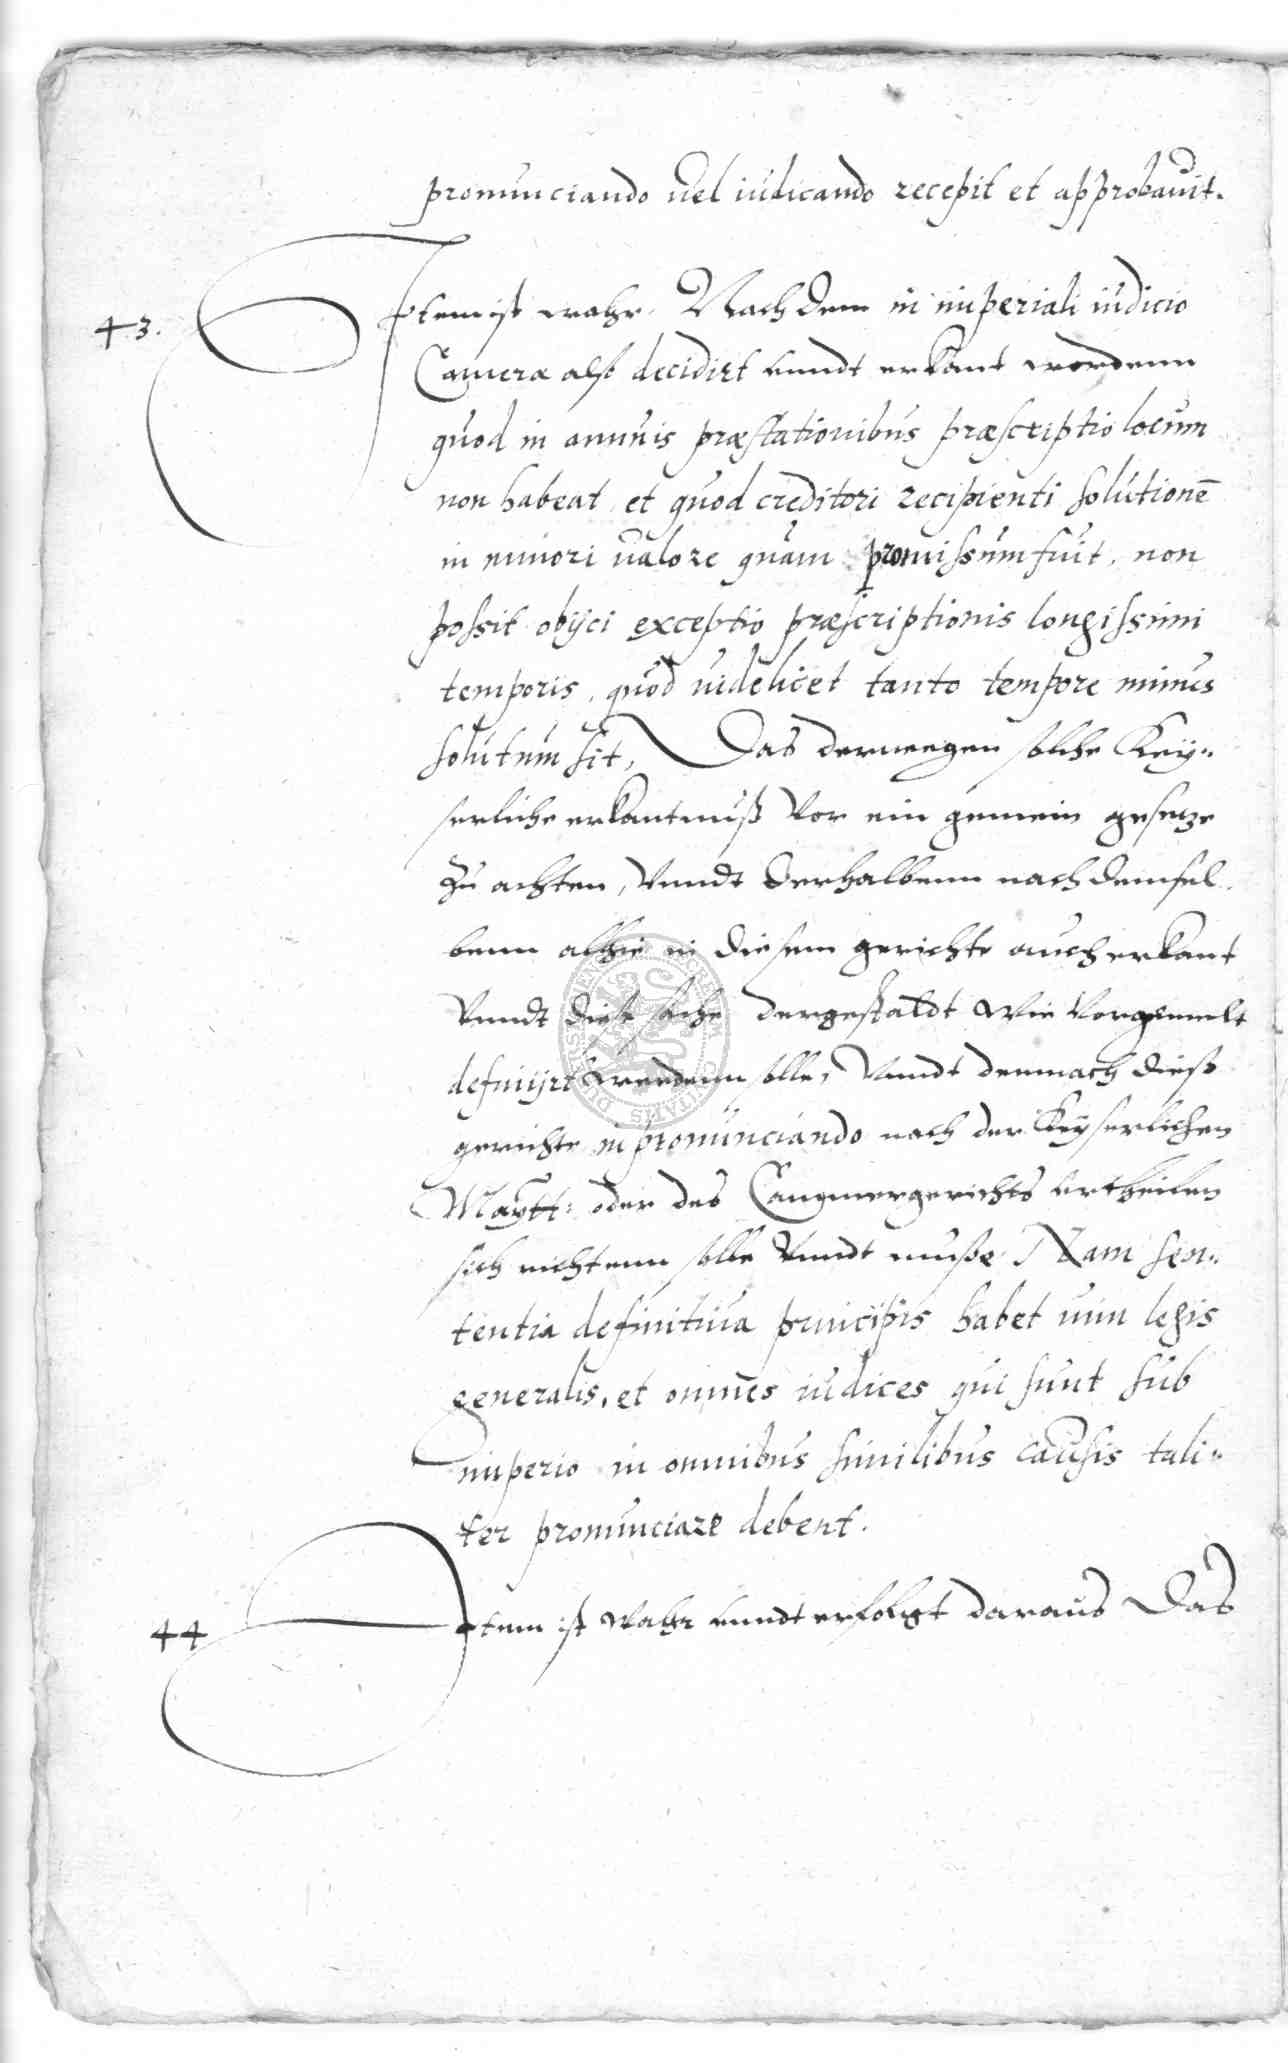 pronunciando uel iudicando recepit et approbauit.
43. Item ist wahr, Nach dem in imperiali iudicio
Cameræ also decidirt unndt erkant wordenn
quod in annuis præstationibus præscriptio locum
non habeat, et quod creditori recipienti solutionē
in minori ualore quam promissum fuit, non
possit obijci exceptio præscriptionis longissimi
temporis, quod uidelicet tanto tempore minus
solutum sit, Das derwegen solche Key"
serliche erkantnuß vor ein gemein gesetze
zu achten, Vnndt derhalbenn nach demsel
benn alhie in diesem gerichte auch erkant
Vnndt diese sache dergestaldt wie vorgemelt
definijrt werdenn solle, Vnndt demnach dieß
gerichte in pronunciando nach der Keyserlichen
Maytt: oder des Cammergerichts urtheilen
sich richtenn solle Vnndt muße Nam sen"
tentia definitiua principis habet uim legis
generalis, et omnes iudices qui sunt sub
imperio in omnibus similibus causis tali"
ter pronunciare debent.
44 Item ist wahr unndt erfolgt daraus Das